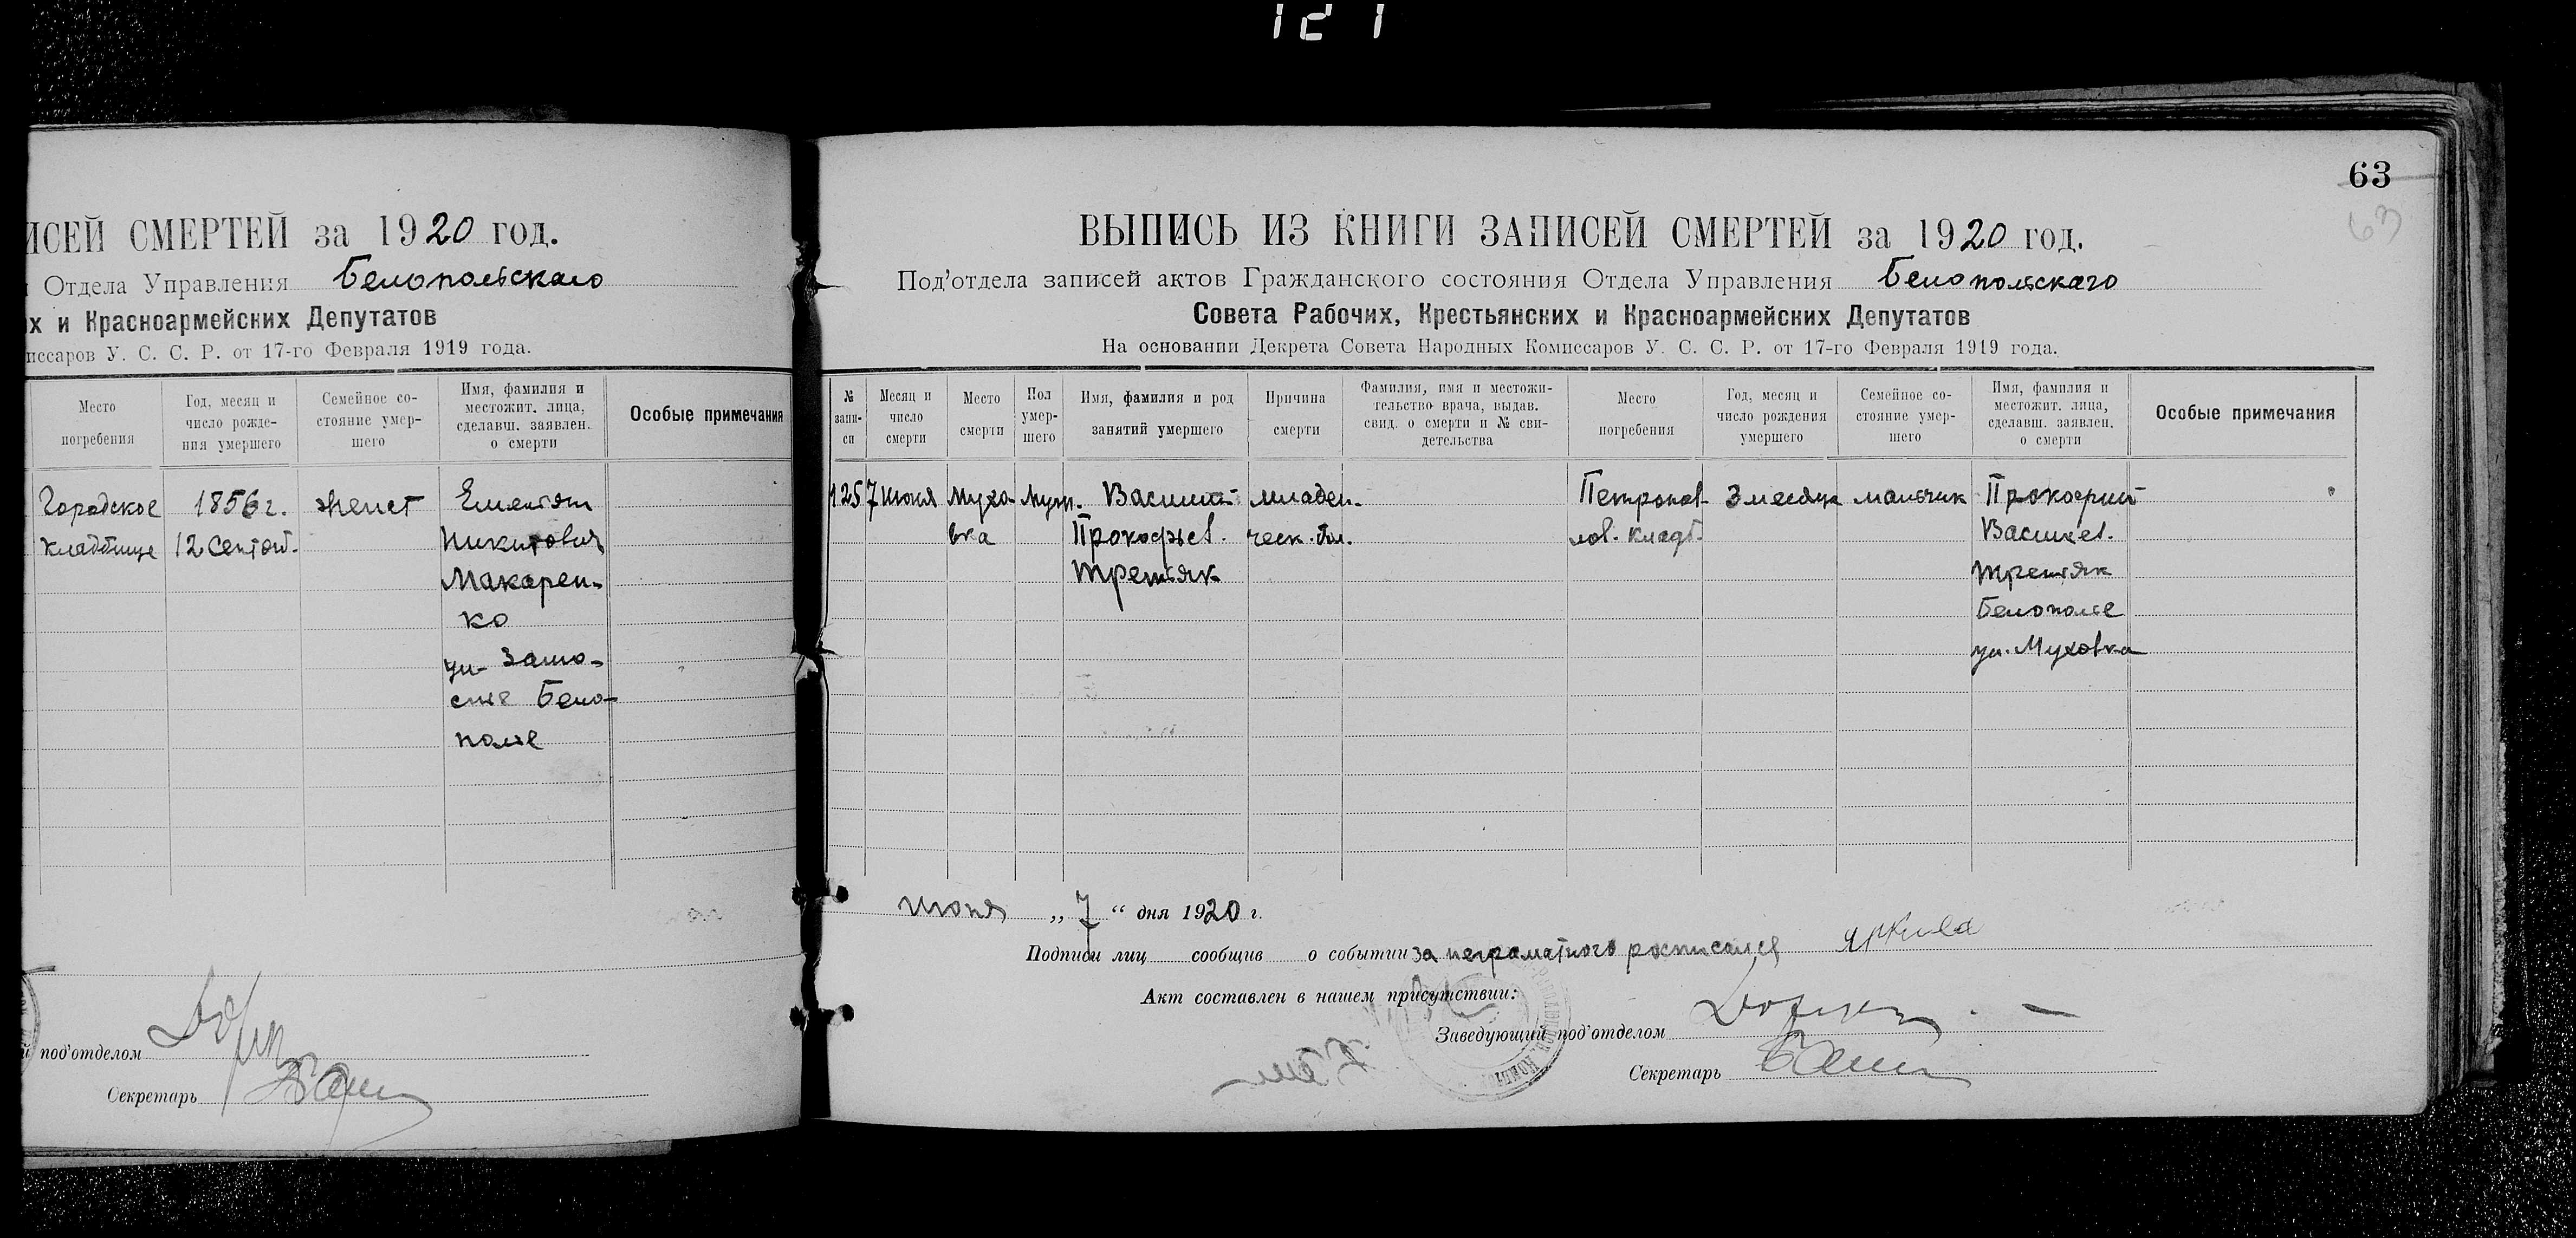 121
ИСЕЙ СМЕРТЕЙ за 1920 год.
Отдела Управления Белопольскаго
х и Красноармейских Депутатов
миссаров У. С. С. Р. от 17-го Февраля 1919 года.
Место погребения
Год, месяц и число рождения умершего
Семейное состояние умершего
Имя, фамилия и местожит. лица, сделавш. заявлен. о смерти
Особые примечания
Городское
кладбище
1856 г.
12 сентяб.
женат
Емельян
Никитович
Макарен-
ко
ул. Замо-
стье Бело-
полье
под'отделом
Секретарь
63
63
ВЫПИСЬ ИЗ КНИГИ ЗАПИСЕЙ СМЕРТЕЙ за 1920 год.
Под'отдела записей актов Гражданского состояния Отдела Управления Белопольскаго
Совета Рабочих, Крестьянских и Красноармейских Депутатов
На основании Декрета Совета Народных Комиссаров У. С. С. Р. от 17-го Февраля 1919 года.
№ запи-си
Месяц и число смерти
Место смерти
Пол умер-шего
Имя, фамилия и род занятий умершего
Причина смерти
Фамилия, имя и местожи-тельство врача, выдав. свид. о смерти и № сви-детельства
Место погребения
Год, месяц и число рождения умершего
Семейное со-стояние умер-шего
Имя, фамилия и местожит. лица, сделавш. заявлен. о смерти
Особые примечания
125 7 июня Мухо- Муж. Василий младен. Петропав 3 месяца мальчик Прокофий
вка Прокофьев. ческ. бол. лов. кладб. Васильев.
Третьяк Третьяк
Белополье
ул. Муховка
Июня „7“ дня 1920 г.
Подписи лиц сообщив о событии за неграматного росписался
Акт составлен в нашем присутствии:
Заведующий под'отделом
Секретарь